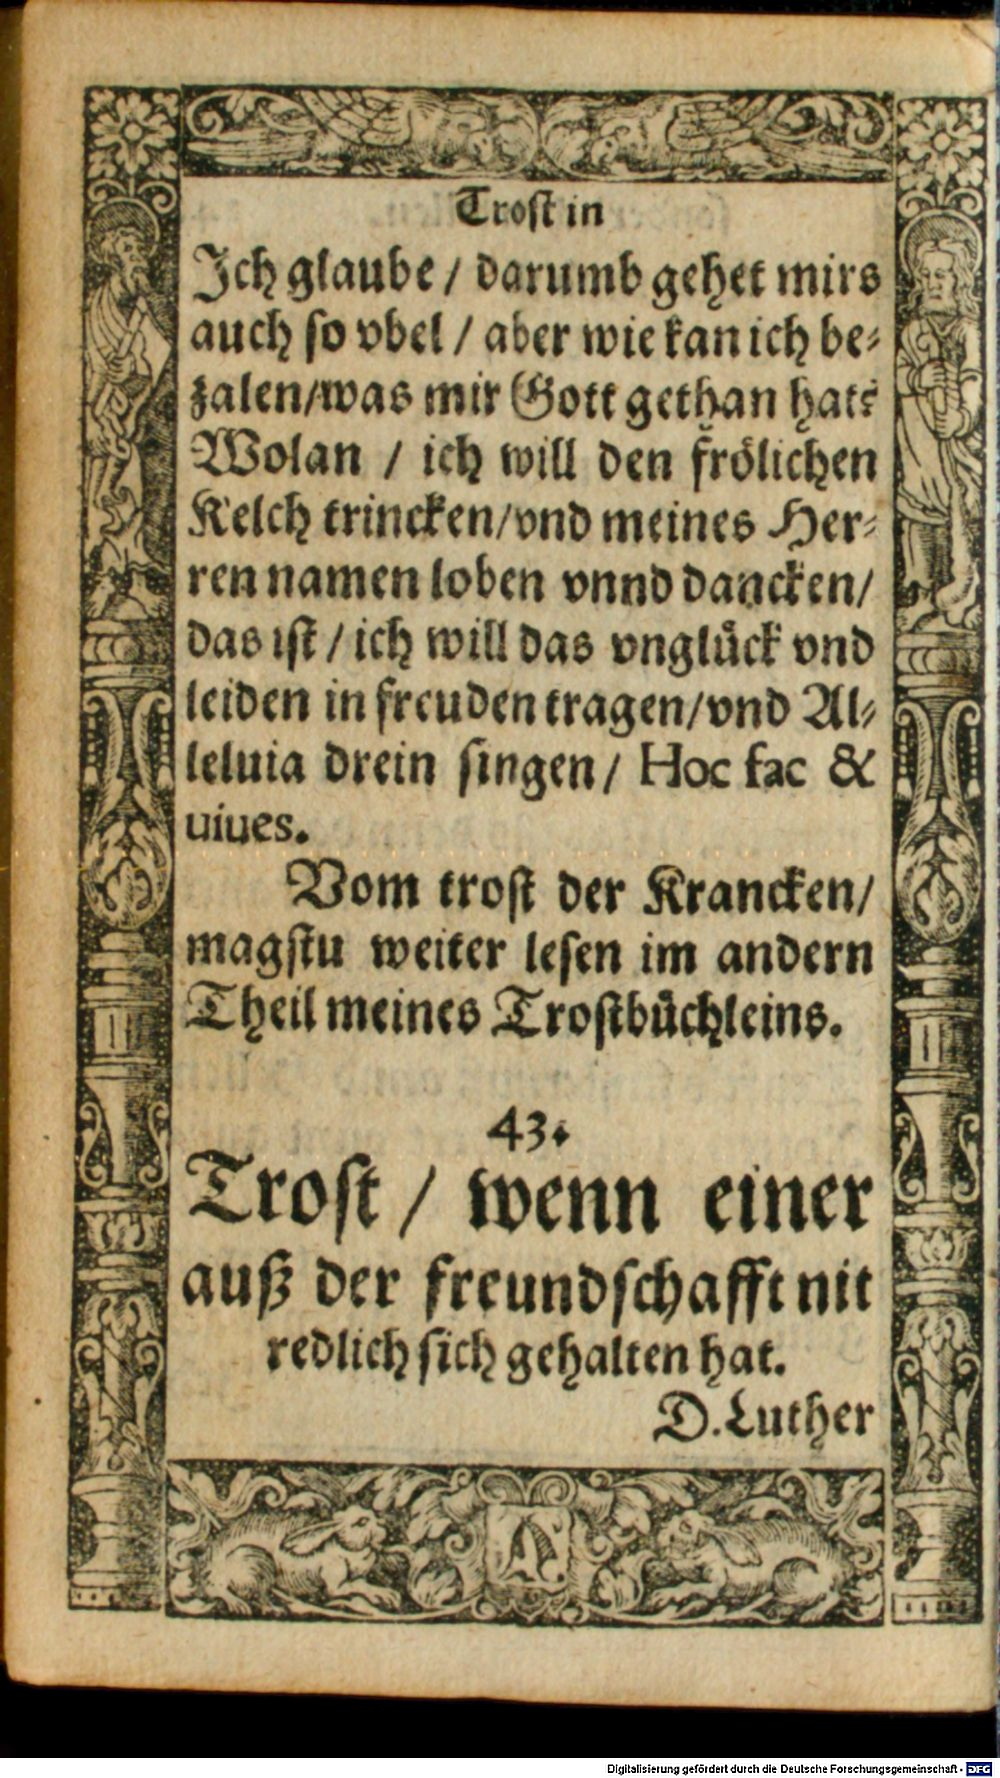 Trost in
Ich glaube / darumb gehet mirs
auch so vbel / aber wie kan ich be⸗
zalen/was mir Gott gethan hat?
Wolan / ich will den frölichen
Kelch trincken/vnd meines Her⸗
ren namen loben vnnd dancken/
das ist / ich will das vnglück vnd
leiden in freuden tragen/vnd Al⸗
leluia drein singen / Hoc fac &
uiues.
Vom trost der Krancken/
magstu weiter lesen im andern
Theil meines Trostbüchleins.
43.
Trost / wenn einer
auß der freundschafft nit
redlich sich gehalten hat.
D. Luther
Digitalisierung gefördert durch die Deutsche Forschungsgemeinschaft - DFG